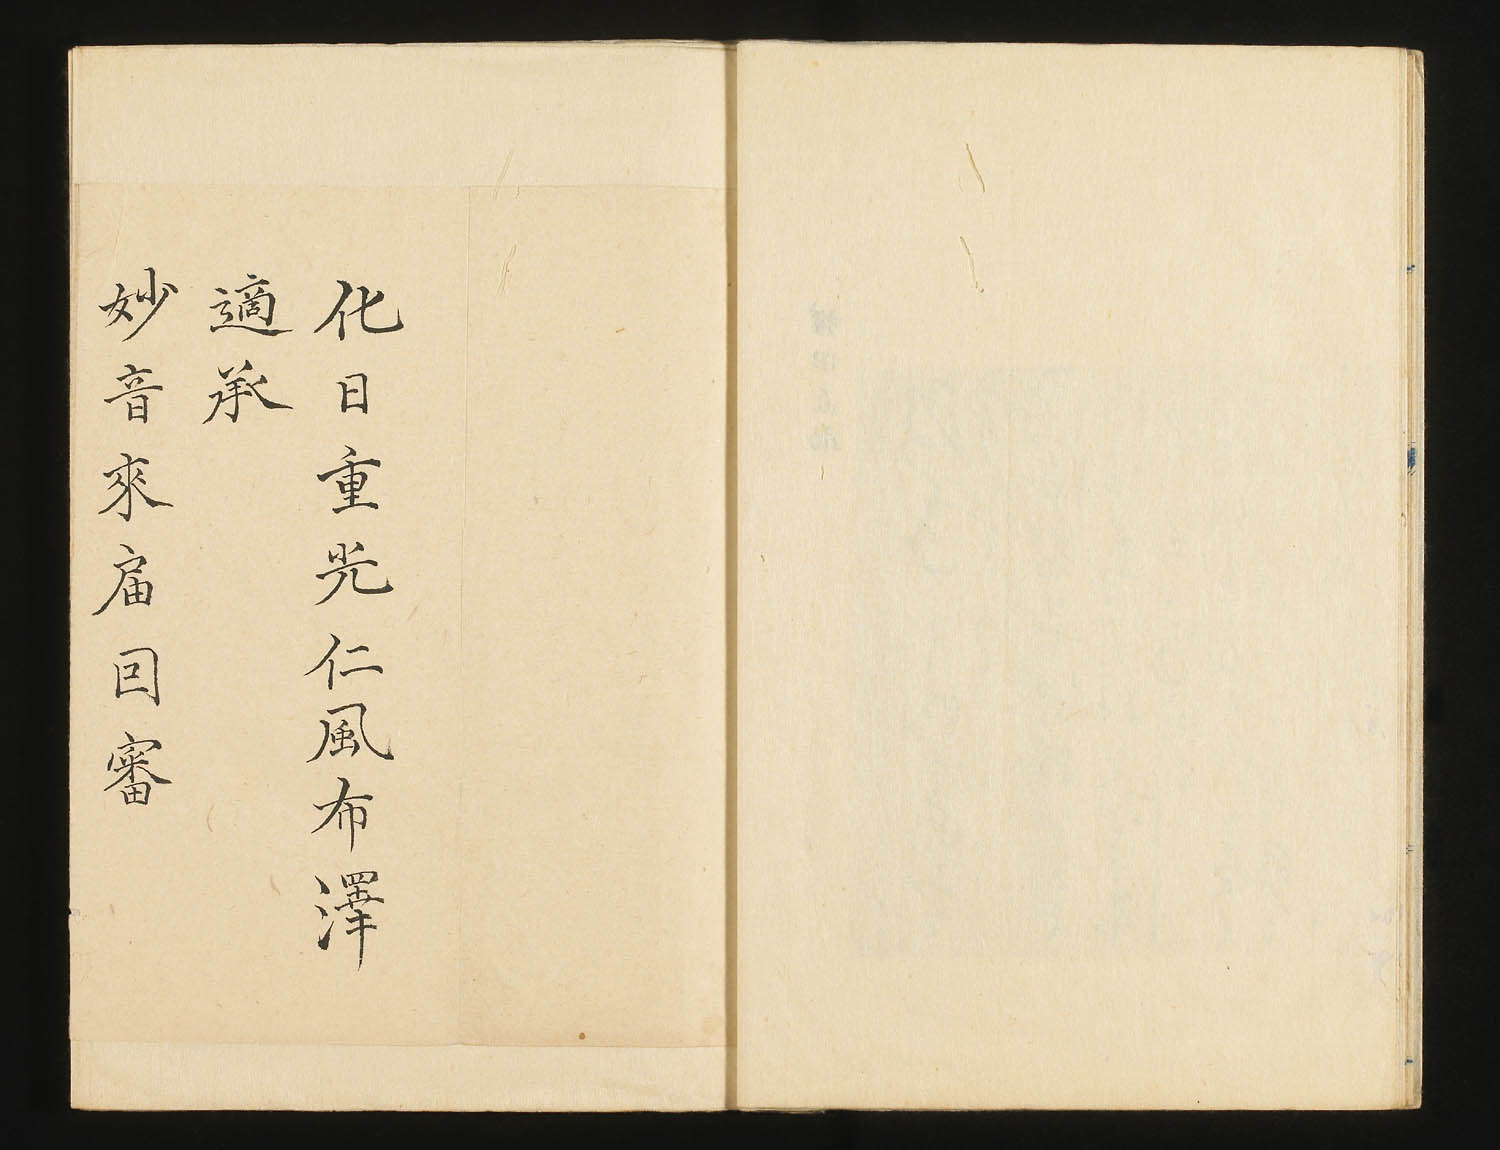 化日重光仁風布澤
適承
妙音來届回審